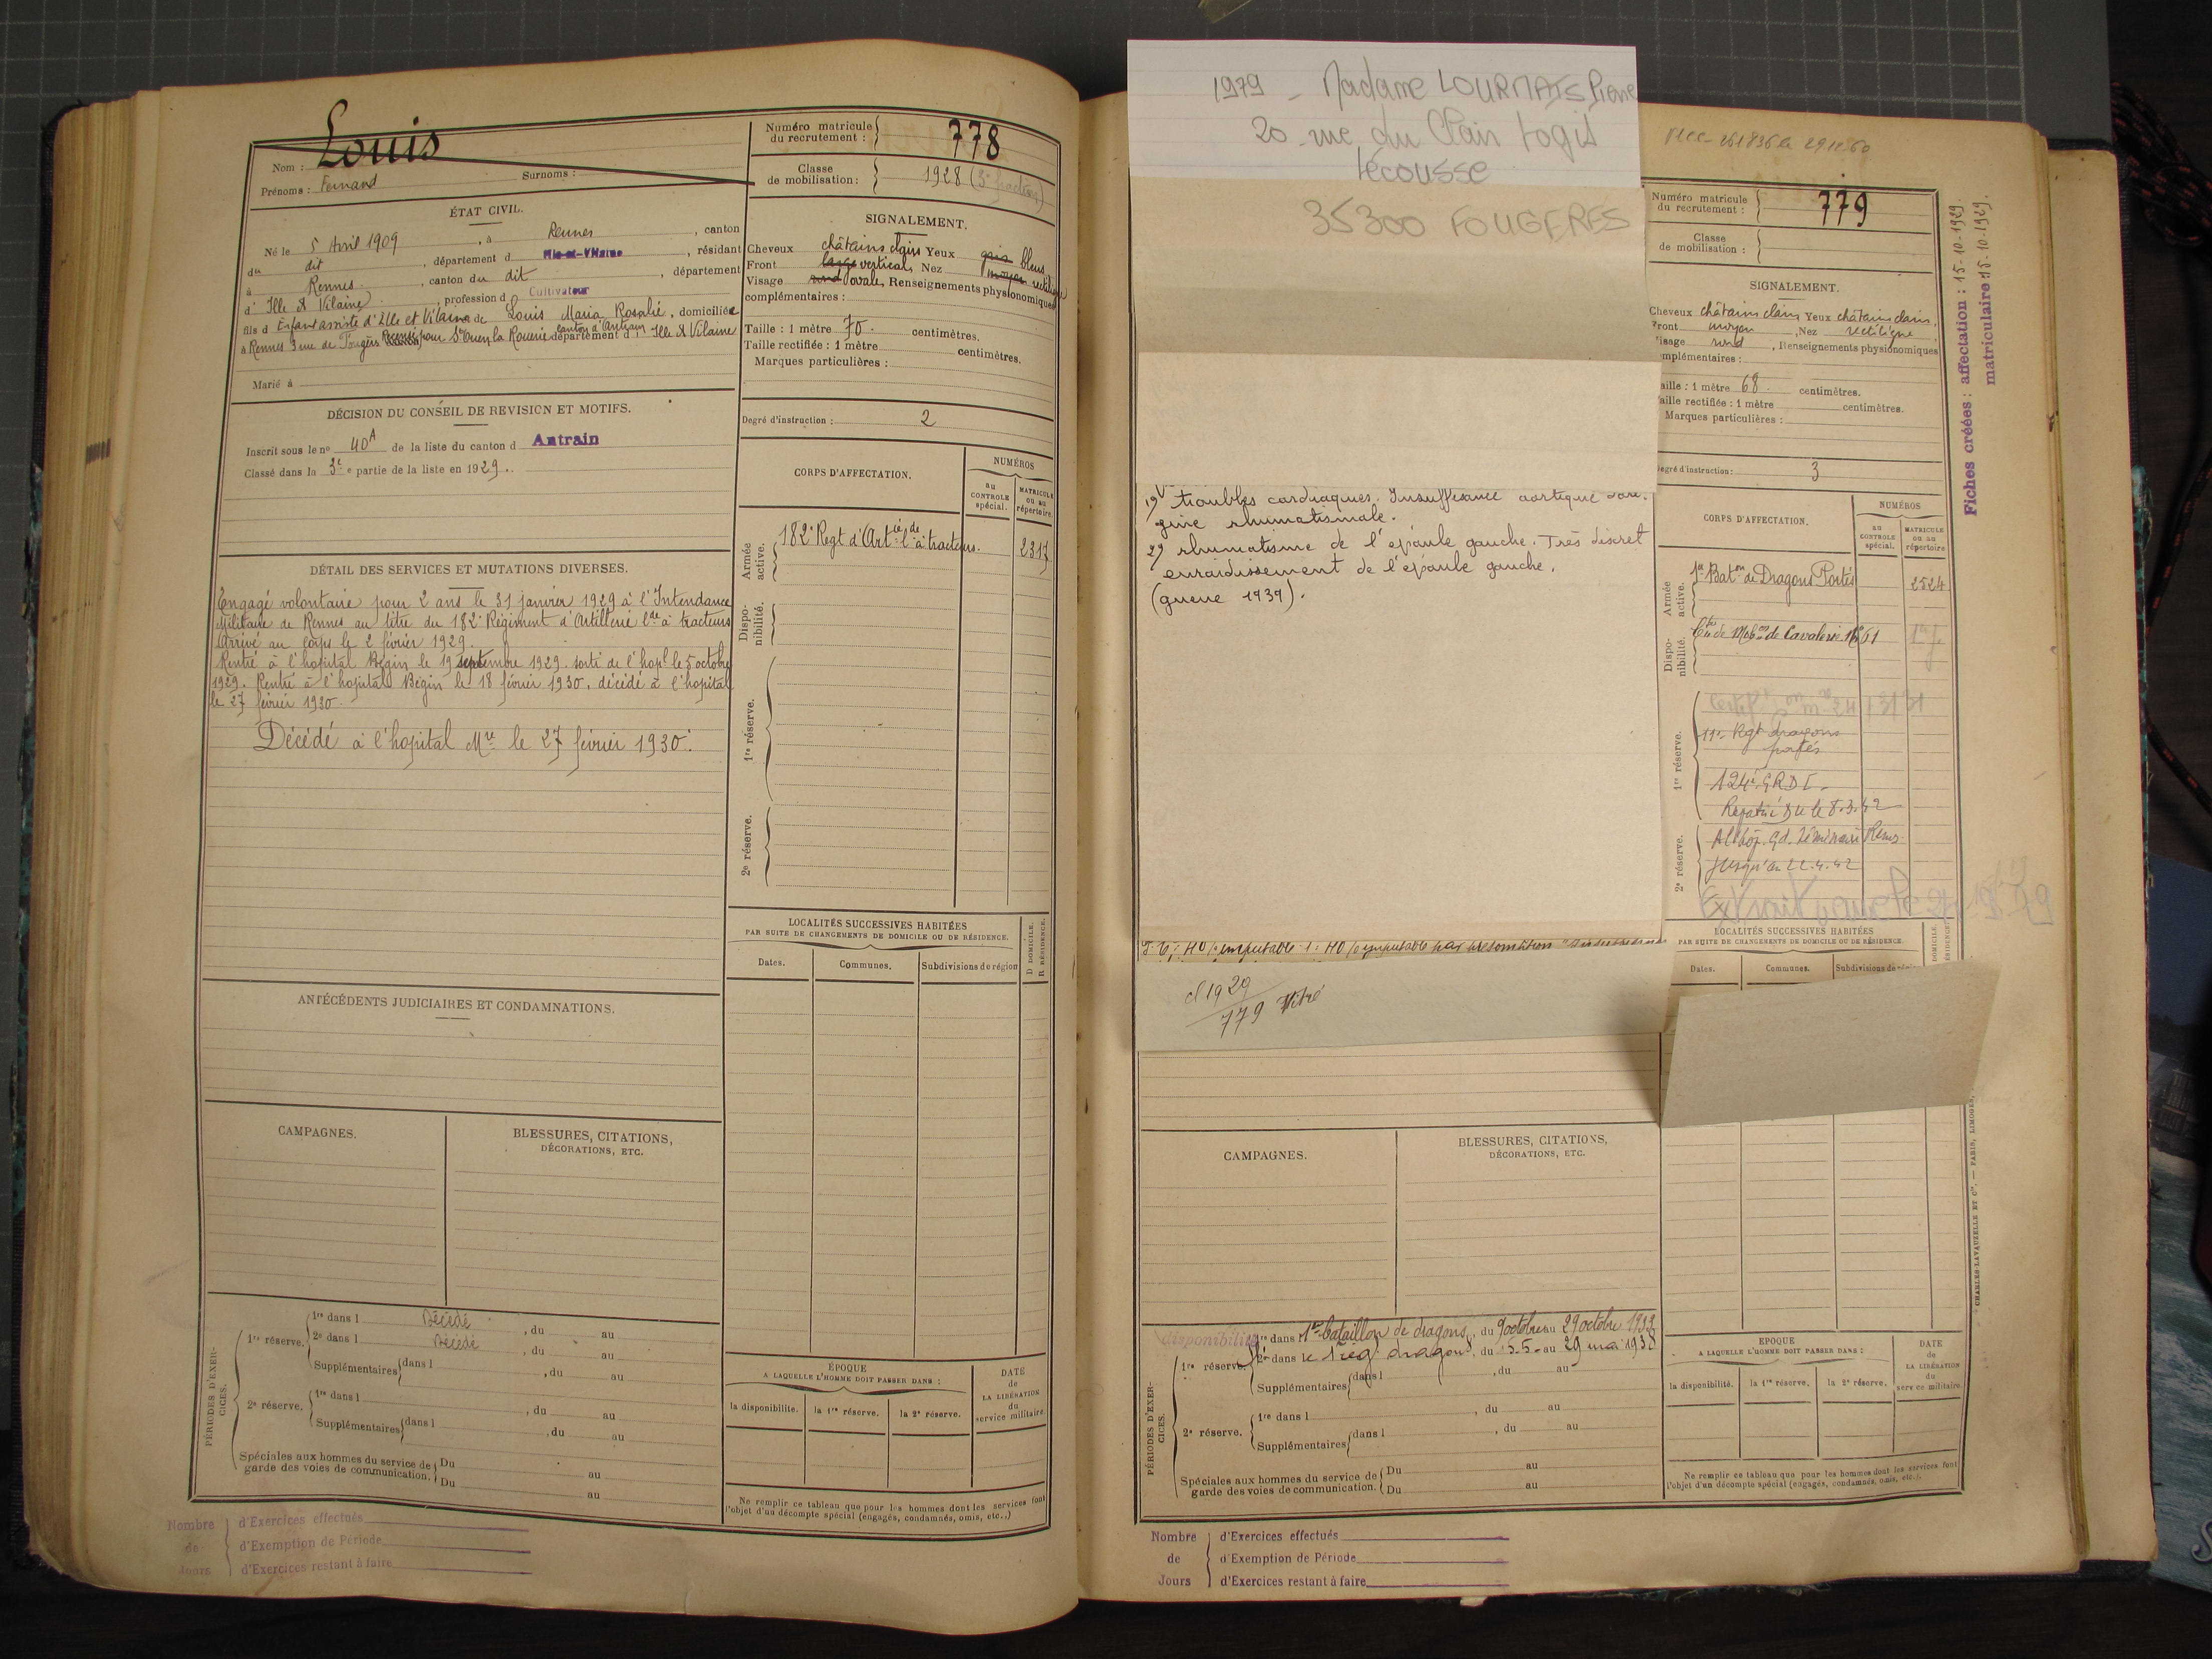 Nom : Louis
Prénoms : Fernand Surnoms :
Numéro matricule du recrutement : 778
Classe de mobilisation : 1928 (3e fraction)
ÉTAT CIVIL.
Né le 5 Avril 1909, à Rennes, canton
du dit, département d Ille-et-Vilaine, résidant
à Rennes, canton du dit, département
d' Ille & Vilaine, profession d Cultivateur
fils d Enfant assisté d'Ille et Vilaine et de Louis Maria Rosalie, domiciliée
à Rennes 3 rue de Fougères pour St Ouen la Rouerie canton d'Antrain département d' Ille & Vilaine
Marié à
SIGNALEMENT.
Cheveux châtains clairs Yeux gris bleus
Front large vertical, Nez moyen rectiligne
Visage rond ovale, Renseignements physionomiques
complémentaires :
Taille : 1 mètre 70 centimètres.
Taille rectifiée : 1 mètre centimètres.
Marques particulières :
Degré d'instruction : 2
DÉCISION DU CONSEIL DE REVISION ET MOTIFS.
Inscrit sous le no 40A de la liste du canton d Antrain
Classé dans la 3e e partie de la liste en 1929.
DÉTAIL DES SERVICES ET MUTATIONS DIVERSES.
Engagé volontaire pour 2 ans le 31 janvier 1929 à l'Intendance
Militaire de Rennes au titre du 182e Régiment d'Artillerie lde à tracteurs
Arrivé au corps le 2 février 1929.
Rentré à l'hopital Bégin le 19 septembre 1929. sorti de l'hopl le 5 octobre
1929. Rentré à l'hopital Bégin le 18 février 1930, décédé à l'hopital
le 27 février 1930.
Décédé à l'hopital Mre le 27 février 1930.
CORPS D'AFFECTATION.
NUMÉROS
au CONTROLE spécial.
MATRICULE ou au répertoire
Armée active.
182e Regt d'Artie lde à tracteurs. 2317
Disponibilité.
1re réserve.
2e réserve.
ANTÉCÉDENTS JUDICIAIRES ET CONDAMNATIONS.
LOCALITÉS SUCCESSIVES HABITÉES
PAR SUITE DE CHANGEMENTS DE DOMICILE OU DE RÉSIDENCE.
Dates. Communes. Subdivisions de région
D DOMICILE. R RÉSIDENCE.
CAMPAGNES.
BLESSURES, CITATIONS,
DÉCORATIONS, ETC.
PÉRIODES D'EXERCICES.
1re réserve. 1re dans l Décédé, du au
2e dans l Décédé, du au
Supplémentaires dans l , du au
2e réserve. 1re dans l , du au
Supplémentaires dans l , du au
Spéciales aux hommes du service de garde des voies de communication. Du au
Du au
ÉPOQUE
A LAQUELLE L'HOMME DOIT PASSER DANS :
la disponibilité. la 1re réserve. la 2e réserve.
DATE de LA LIBÉRATION du service militaire
Ne remplir ce tableau que pour les hommes dont les services font
l'objet d'un décompte spécial (engagés, condamnés, omis, etc..)
Nombre de Jours
d'Exercices effectués
d'Exemption de Période
d'Exercices restant à faire
1979 - Madame LOURMAIS Pierre
20 rue du Clair Logis
Lécousse
35300 FOUGERES
1) troubles cardiaques. Insuffisance aortique d'origine rhumatismale.
2) rhumatisme de l'épaule gauche. Très discret
enraidissement de l'épaule gauche.
(guerre 1939).
cl 1929
779 Vitré
Numéro matricule du recrutement : 779
Classe de mobilisation :
SIGNALEMENT.
Cheveux châtains clairs Yeux châtains clairs,
Front moyen, Nez rectiligne
Visage rond, Renseignements physionomiques
complémentaires :
Taille : 1 mètre 68 centimètres.
Taille rectifiée : 1 mètre centimètres.
Marques particulières :
Degré d'instruction : 3
CORPS D'AFFECTATION.
NUMÉROS
au CONTROLE spécial.
MATRICULE ou au répertoire
Armée active.
1er Baton de Dragons Portés 2524
Disponibilité.
Cre de Mobon de Cavalerie No 61
1re réserve.
11e Regt dragons
portés
124e GRDI.
Rapatrié DU le 8.3.42
2e réserve.
Al'hôp. Gd. Séminaire Rennes
jusqu'au 22.4.42
LOCALITÉS SUCCESSIVES HABITÉES
PAR SUITE DE CHANGEMENTS DE DOMICILE OU DE RÉSIDENCE.
Dates. Communes. Subdivisions de
Fiches créées : affectation : 15-10-1929.
matriculaire : 15-10-1929.
CAMPAGNES.
BLESSURES, CITATIONS,
DÉCORATIONS, ETC.
PÉRIODES D'EXERCICES.
disponibilité 1re dans l 1er bataillon de dragons, du 9 octobre au 29 octobre 1933
1re réserve. 2e dans le 1er reg dragons, du 5.5. au 29 mai 1938
Supplémentaires dans l , du au
2e réserve. 1re dans l , du au
Supplémentaires dans l , du au
Spéciales aux hommes du service de garde des voies de communication. Du au
Du au
EPOQUE
A LAQUELLE L'HOMME DOIT PASSER DANS :
la disponibilité. la 1re réserve. la 2e réserve.
DATE de LA LIBÉRATION du service militaire
Ne remplir ce tableau que pour les hommes dont les services font
l'objet d'un décompte spécial (engagés, condamnés, omis, etc.).
CHARLES-LAVAUZELLE ET Cie. — PARIS, LIMOGES,
Nombre de Jours
d'Exercices effectués
d'Exemption de Période
d'Exercices restant à faire